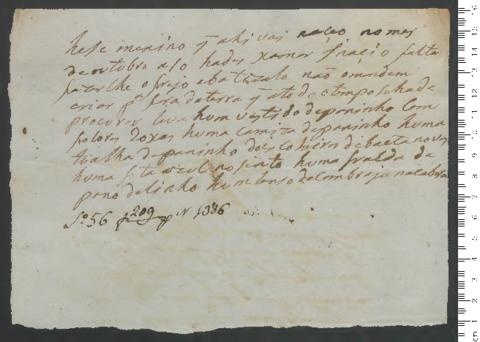 hesse menino q ahi vai naceo no mes
de outubro aso hades xamar Ignacio falta
porlhe o frejo e batizalo não o mandem
criar p.ª fora da terra q a todo o tempo se hade
procurar leva hum vestido de paninho com
folores Roxas huma camiza de paninho huma
toalha de paninho dois coheiros de baeta novos
huma fita azul no sinto huma fralda de
pano de linho hum lenso de cambraia na cabesa
L.º 56 f 209 N 1836